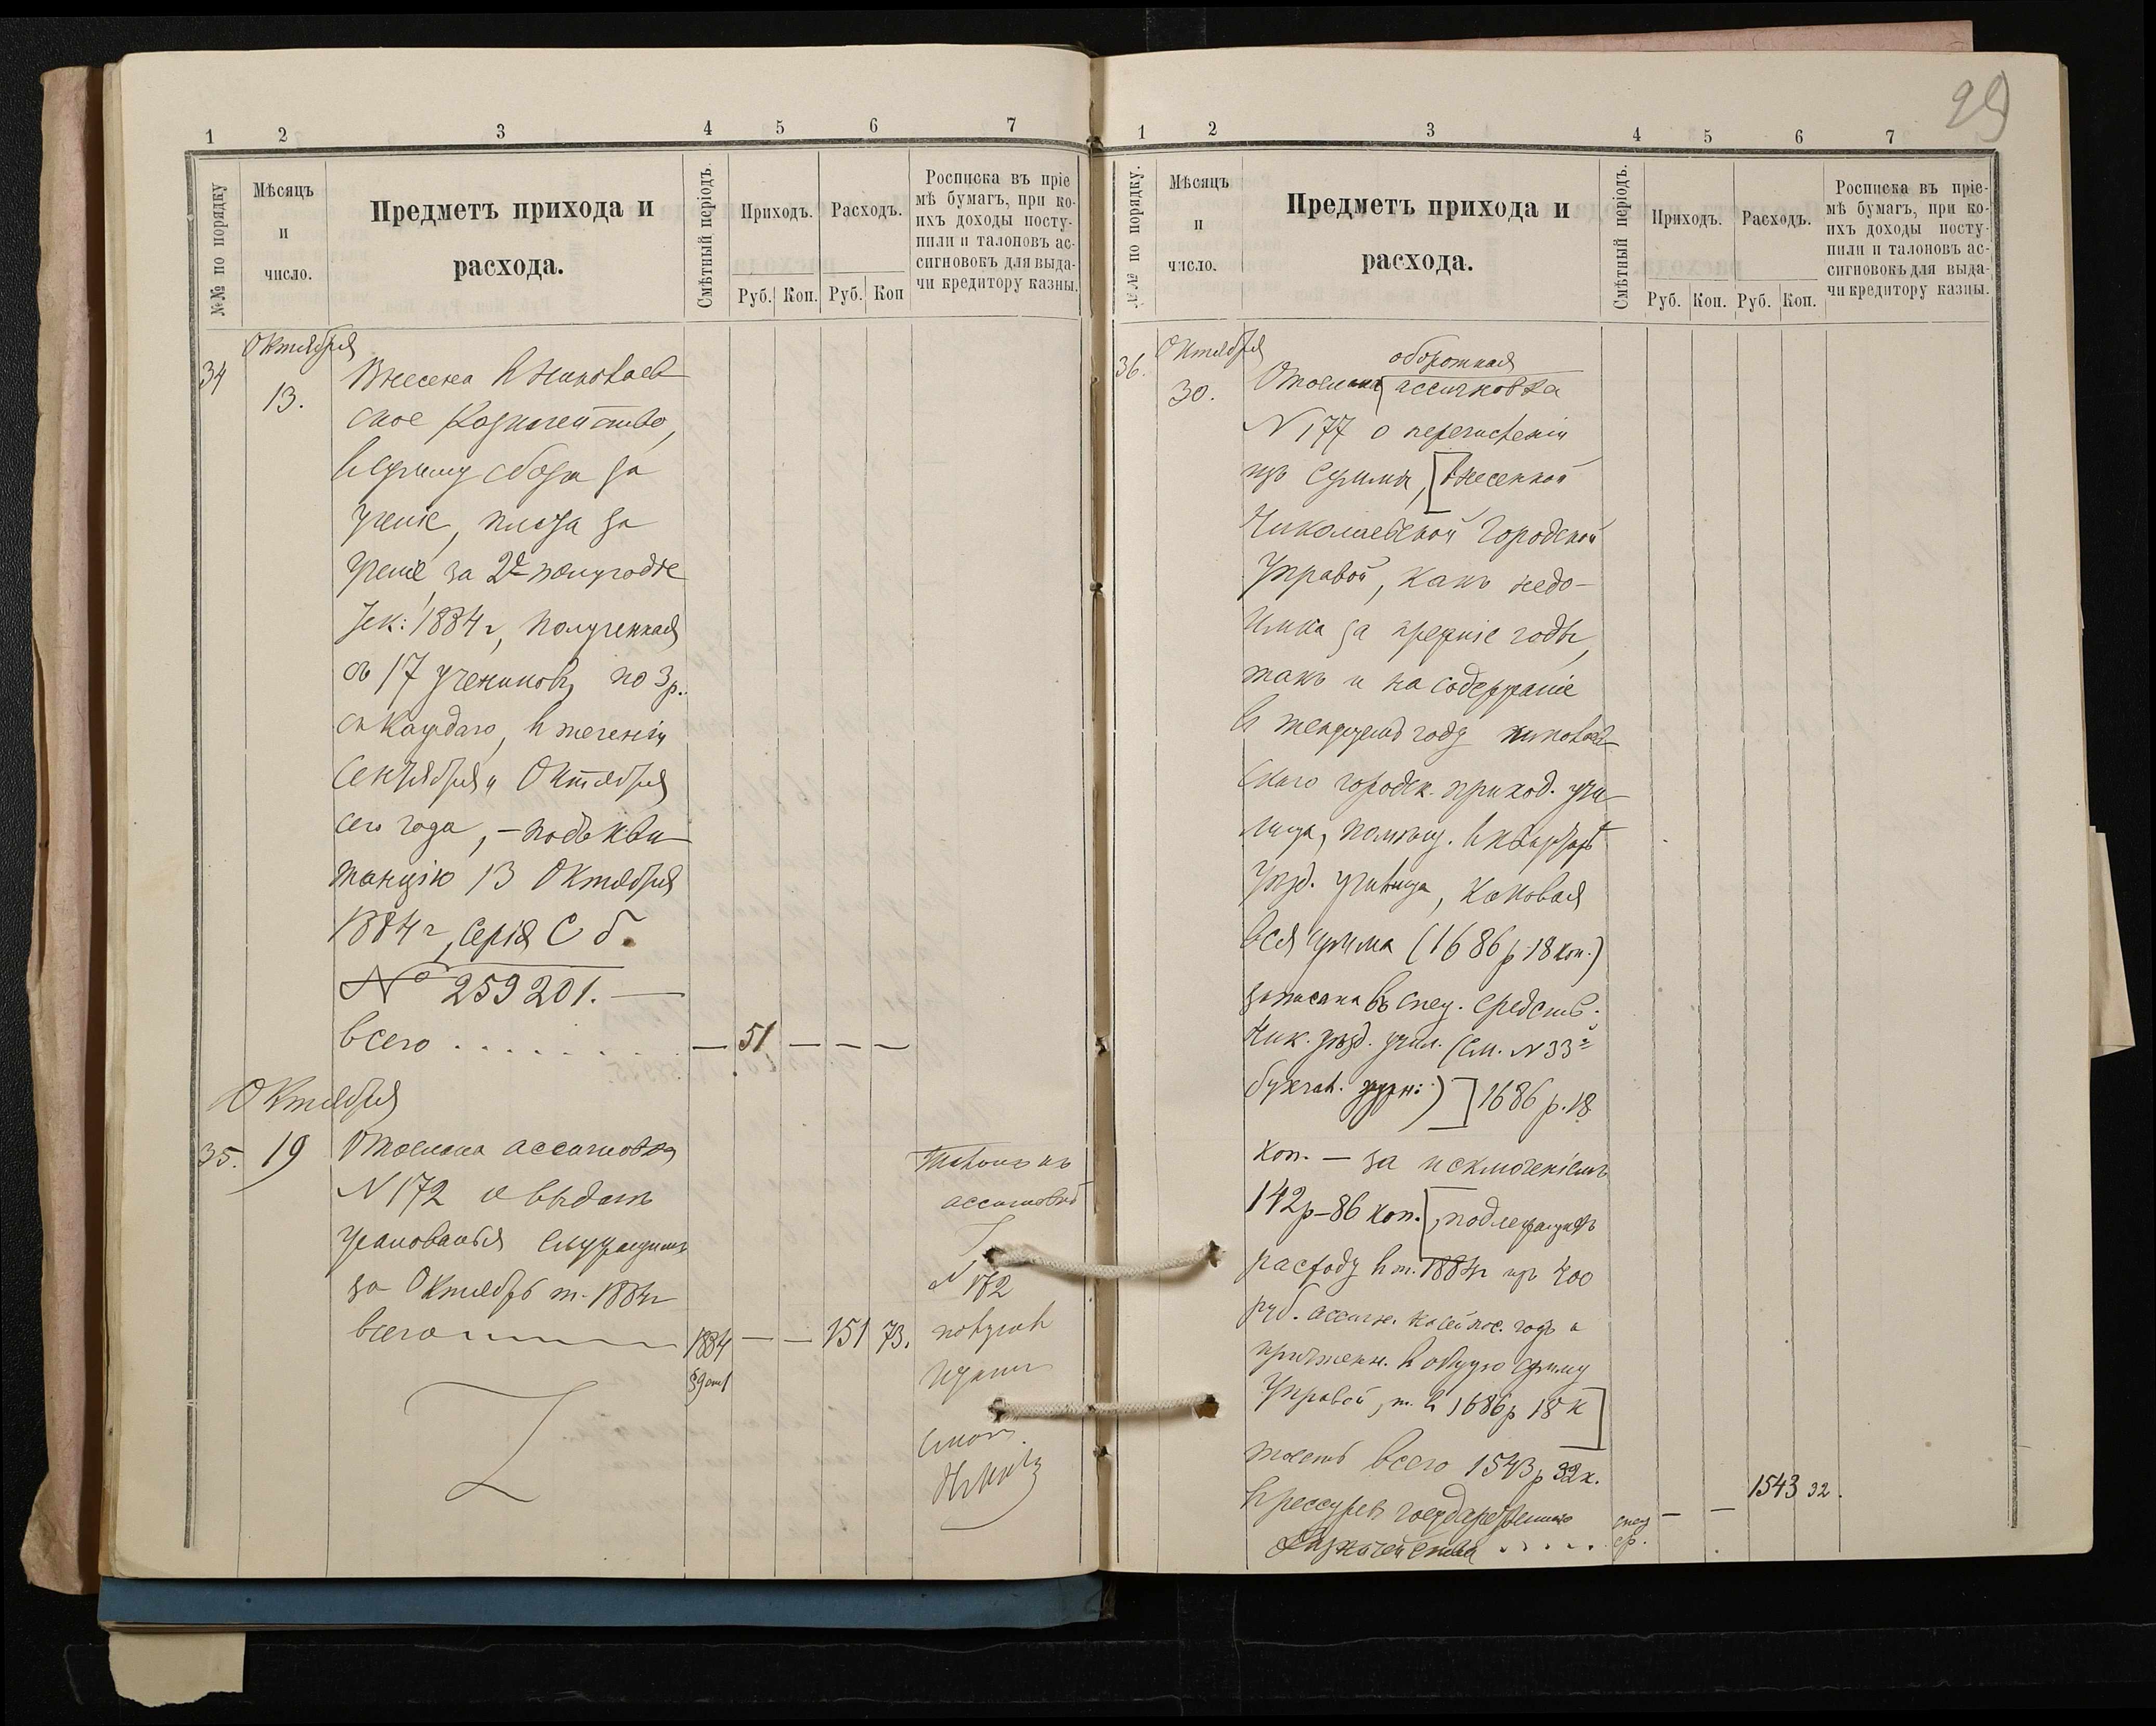 29
1 2 3 4 5 6 7
№№ по порядку
Мѣсяцъ
и
число.
Предметъ прихода и
расхода.
Смѣтный періодъ.
Приходъ.
Расходъ.
Руб. Коп. Руб. Коп
Росписка въ пріе
мѣ бумагъ, при ко-
ихъ доходы посту-
пили и талоновъ ас-
сигновокъ для выда-
чи кредитору казны.
Октября
34 13.
Внесена в Николаев
ское Казначейство,
в сумму сбора за
ученіе, плата за
ученіе за 2е полугодіе
тек: 1884 г, полученная
съ 17 учениковъ, по 3 р.
съ каждаго, в теченіи
Сентября и Октября
сего года, – подъ кви
танцію 13 Октября
1884 г, серія С б.
№ 259201. —
всего . . . . . . . . — 51 — — —
Октября
35. 19
Отослана ассигновка
N 172 о выдачѣ
жалованья служащимъ
за Октябрь м. 1884 г
всего 1884 — — 151 73.
§9 ст 1
Талонъ къ
ассигновкѣ
N 172
получилъ
1 2 3 4 5 6 7
№№ по порядку.
Мѣсяцъ
и
число.
Предметъ прихода и
расхода.
Смѣтный періодъ.
Приходъ.
Расходъ.
Руб. Коп. Руб. Коп.
Росписка въ пріе-
мѣ бумагъ, при ко-
ихъ доходы посту-
пили и талоновъ ас-
сигновокъ для выда-
чи кредитору казны.
Октября
36. 30.
оборотная
Отослана ассигновка
N 177 о перечисленіи
изъ суммы, [внесенной
Николаевской Городской
Управой, какъ недо-
имка за прежніе годы,
такъ и на содержаніе
в текущемъ году николаев
скаго городск. приход. учи
лища, помѣщ. в квартирѣ
уѣзд. училища, каковая
вся сумма (1686 р 18 коп.)
записана въ спец. средств.
Ник. уѣзд. учил. (см. N 33й
бухгал. журн:)] 1686 р. 18
коп. — за исключеніемъ
142 р – 86 коп. [, подлежащихъ
расходу в т. 1884 г изъ 400
руб. ассигн. на сей пос. годъ и
причтенн. в общую сумму
Управой, т. е. 1686 р 18 к]
то есть всего 1543 р 32 к.
в рессурсъ государственнаго
Казначейства . . . . . спец ср. — — 1543 32.